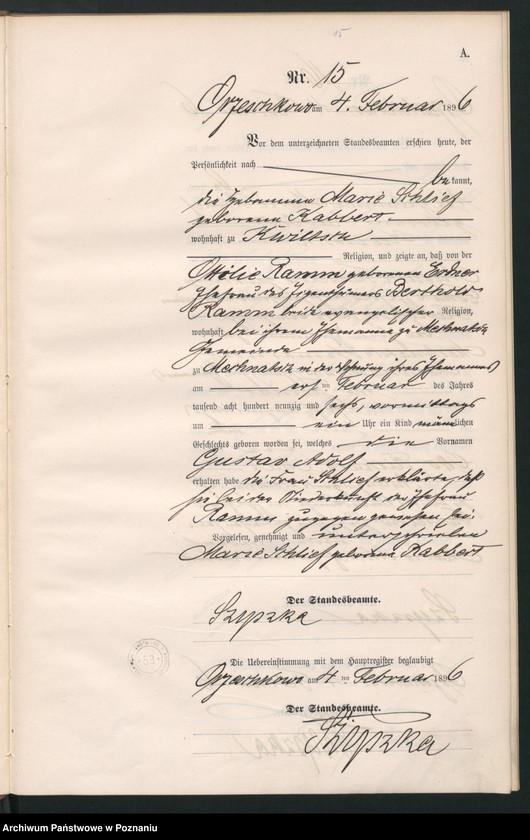 15
A.
Nr. 15
Orzeschkowo am 4. Februar 1896
Vor dem unterzeichneten Standesbeamten erschien heute, der
Persönlichkeit nach bekannt,
die Hebamme Marie Schlief
geborene Kabbert
wohnhaft zu Kwiltsch
Religion, und zeigte an, daß von der
Ottilie Ramm geborenen Erdner
Ehefrau des Eigenthümers Berthold
Ramm beide evangelischer Religion,
wohnhaft bei ihrem Ehemanne zu Mechnatsch
Gemeinde
zu Mechnatsch in der Wohnung ihres Ehemannes
am ersten Februar des Jahres
tausend acht hundert neunzig und sechs, vormittags
um ein Uhr ein Kind männlichen
Geschlechts geboren worden sei, welches die Vornamen
Gustav Adolf
erhalten habe die Frau Schlief erklärte, daß
sie bei der Niederkunft der Ehefrau
Ramm zugegen gewesen sei.
Vorgelesen, genehmigt und unterschrieben
Marie Schlief geborene Kabbert
Der Standesbeamte.
Szypzka
53
Die Uebereinstimmung mit dem Hauptregister beglaubigt
Orzeschkowo am 4 ten Februar 1896
Der Standesbeamte.
Szypzka
Archiwum Państwowe w Poznaniu